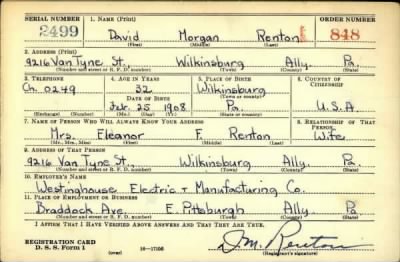 SERIAL NUMBER 1. NAME (Print) ORDER NUMBER
2499 David Morgan Renton 848
(First) (Middle) (Last)
2. ADDRESS (Print)
9216 Van Tyne St. Wilkinsburg Ally. Pa.
(Number and street or R. F. D. number) (Town) (County) (State)
3. TELEPHONE 4. AGE IN YEARS 5. PLACE OF BIRTH 6. COUNTRY OF CITIZENSHIP
Ch. 0249 32 Wilkinsburg
DATE OF BIRTH (Town or county)
Feb. 25 1908 Pa. U.S.A
(Exchange) (Number) (Mo.) (Day) (Yr.) (State or country)
7. NAME OF PERSON WHO WILL ALWAYS KNOW YOUR ADDRESS 8. RELATIONSHIP OF THAT PERSON
Mrs. Eleanor F. Renton Wife
(Mr., Mrs., Miss) (First) (Middle) (Last)
9. ADDRESS OF THAT PERSON
9216 Van Tyne St., Wilkinsburg Ally. Pa.
(Number and street or R. F. D. number) (Town) (County) (State)
10. EMPLOYER'S NAME
Westinghouse Electric + Manufacturing Co.
11. PLACE OF EMPLOYMENT OR BUSINESS
Braddock Ave. E. Pittsburgh Ally. Pa.
(Number and street or R. F. D. number) (Town) (County) (State)
I AFFIRM THAT I HAVE VERIFIED ABOVE ANSWERS AND THAT THEY ARE TRUE.
REGISTRATION CARD
D. S. S. Form 1 (over) 16—17105 D.M. Renton
(Registrant's signature)